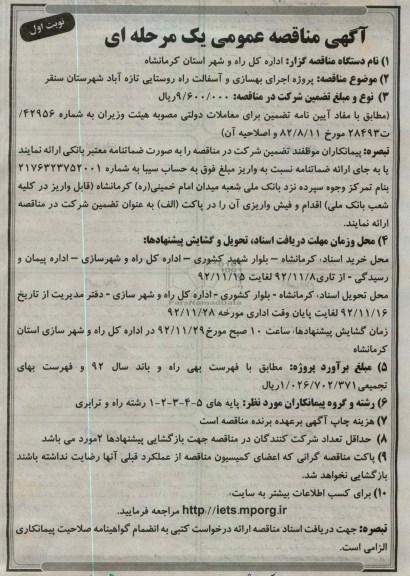 نوبت اول
آگهی مناقصه عمومی یک مرحله ای
۱) نام دستگاه مناقصه گزار: اداره کل راه و شهر استان کرمانشاه
۲) موضوع مناقصه: پروژه اجرای بهسازی و آسفالت راه روستایی تازه آباد شهرستان سنقر
۳) نوع و مبلغ تضمین شرکت در مناقصه: ۹/۶۰۰/۰۰۰ریال
(مطابق با مفاد آیین نامه تضمین برای معاملات دولتی مصوبه هیئت وزیران به شماره ۴۲۹۵۶/
ت۲۸۴۹۳ مورخ ۸۲/۸/۱۱ و اصلاحیه آن)
تبصره: پیمانکاران موظفند تضمین شرکت در مناقصه را به صورت ضمانتنامه معتبر بانکی ارائه نمایند
یا به جای ارائه ضمانتنامه نسبت به واریز مبلغ فوق به حساب سیبا به شماره ۲۱۷۶۳۲۳۷۵۲۰۰۱
بنام تمرکز وجوه سپرده نزد بانک ملی شعبه میدان امام خمینی(ره) کرمانشاه (قابل واریز در کلیه
شعب بانک ملی) اقدام و فیش واریزی آن را در پاکت (الف) به عنوان تضمین شرکت در مناقصه
ارائه نمایند.
۴) محل وزمان مهلت دریافت اسناد، تحویل و گشایش پیشنهادها:
محل خرید اسناد، کرمانشاه – بلوار شهید کشوری – اداره کل راه و شهرسازی – اداره پیمان و
رسیدگی - از تاری۹۲/۱۱/۸ لغایت ۹۲/۱۱/۱۵
محل تحویل اسناد، کرمانشاه - بلوار کشوری - اداره کل راه و شهر سازی - دفتر مدیریت از تاریخ
۹۲/۱۱/۱۶ لغایت پایان وقت اداری مورخه ۹۲/۱۱/۲۸
زمان گشایش پیشنهادها، ساعت ۱۰ صبح مورخ۹۲/۱۱/۲۹ در اداره کل راه و شهر سازی استان
کرمانشاه
۵) مبلغ برآورد پروژه: مطابق با فهرست بهی راه و باند سال ۹۲ و فهرست بهای
تجمیعی ۱/۰۲۶/۷۰۲/۳۷۱ریال
۶) رشته و گروه پیمانکاران مورد نظر: پایه های ۵-۴-۳-۲-۱ رشته راه و ترابری
۷) هزینه چاپ آگهی برعهده برنده مناقصه است
۸) حداقل تعداد شرکت کنندگان در مناقصه جهت بازگشایی پیشنهادها ۲مورد می باشد
۹) پاکت مناقصه گرانی که اعضای کمیسیون مناقصه از عملکرد قبلی آنها رضایت نداشته باشند
بازگشایی نخواهد شد.
۱۰) برای کسب اطلاعات بیشتر به سایت،
http://iets.mporg.ir مراجعه فرمایید.
تبصره: جهت دریافت اسناد مناقصه ارائه درخواست کتبی به انضمام گواهینامه صلاحیت پیمانکاری
الزامی است.